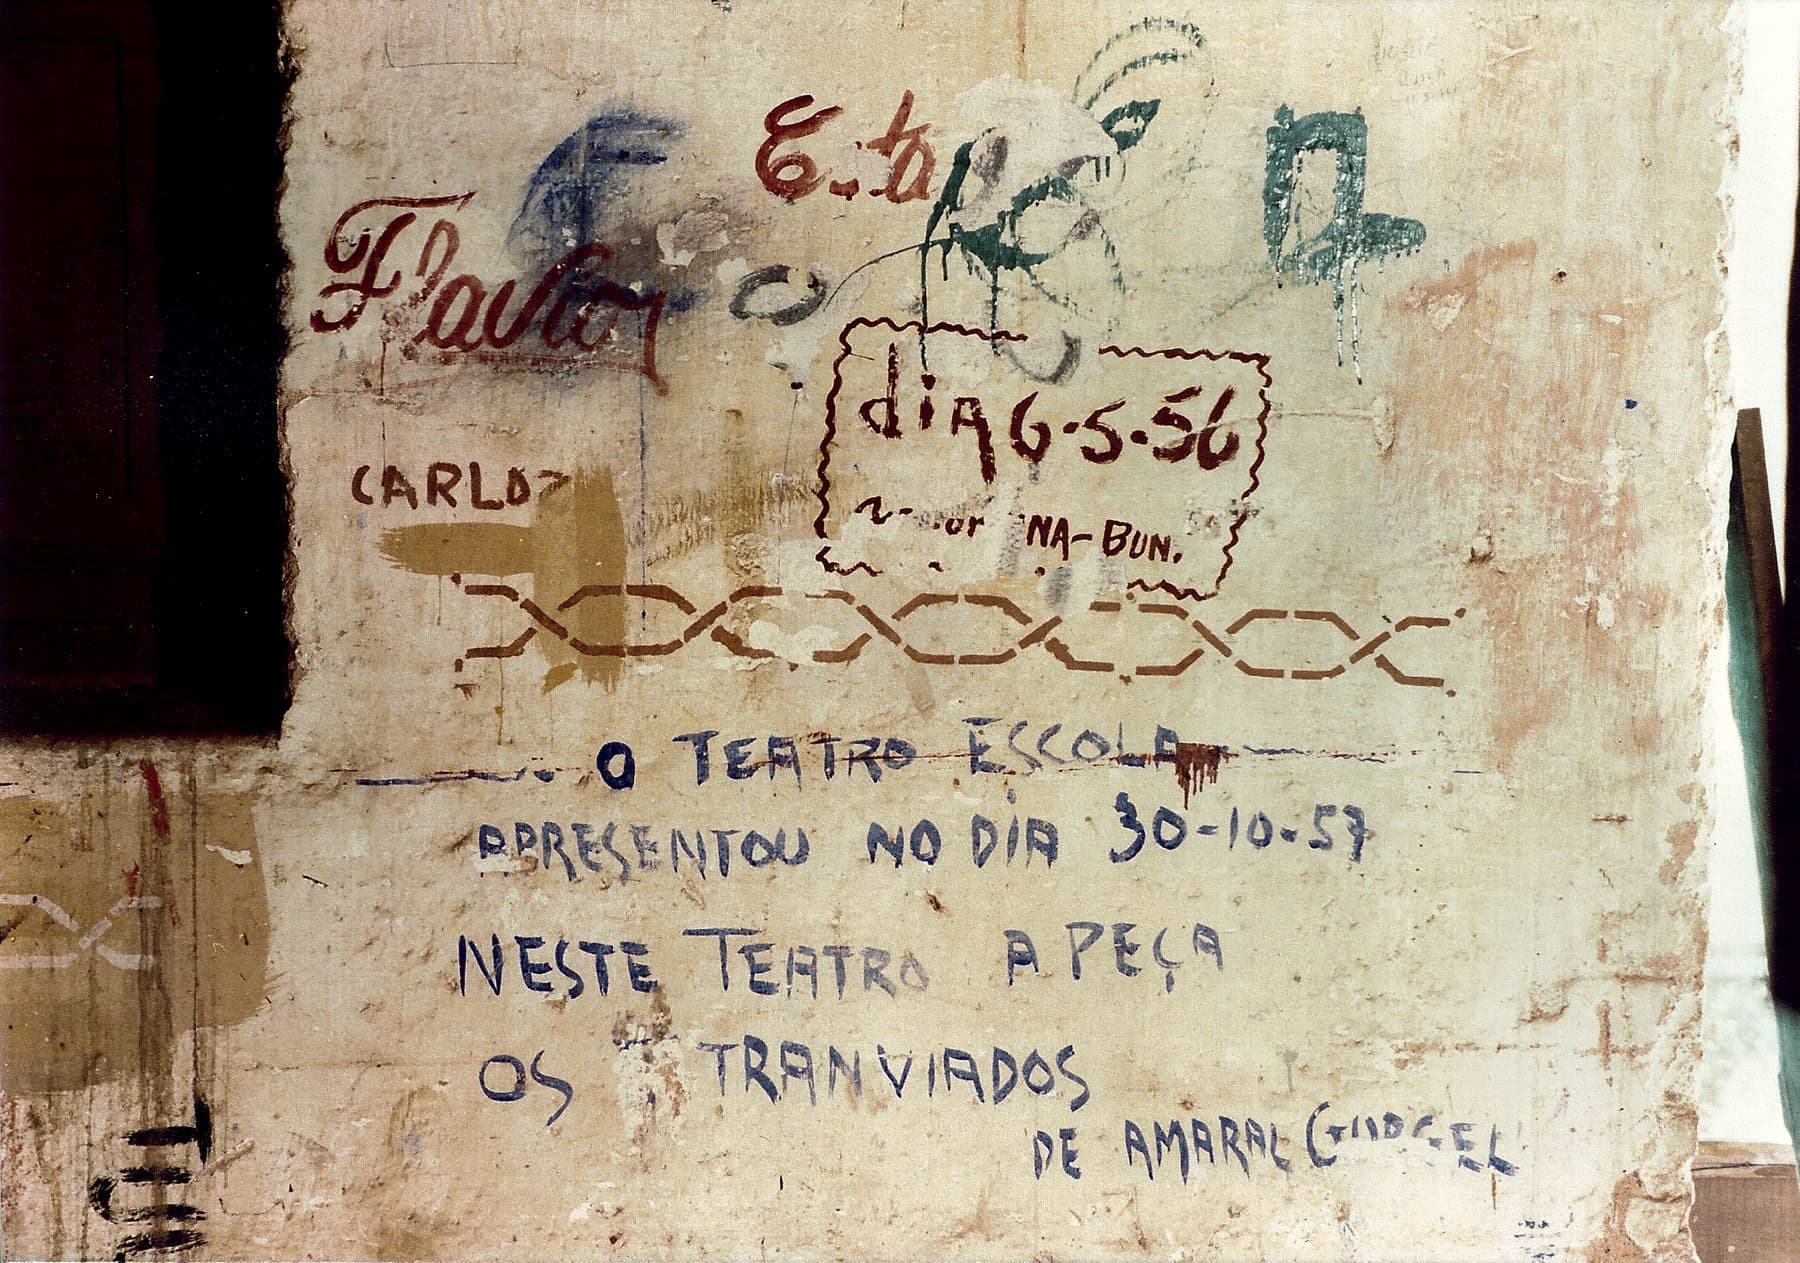 Esta
Flavio
dia 6-5-56
CARLOS
NA-BUN.
O TEATRO ESCOLA
APRESENTOU NO DIA 30-10-57
NESTE TEATRO A PEÇA
OS TRANVIADOS
DE AMARAL GURGEL